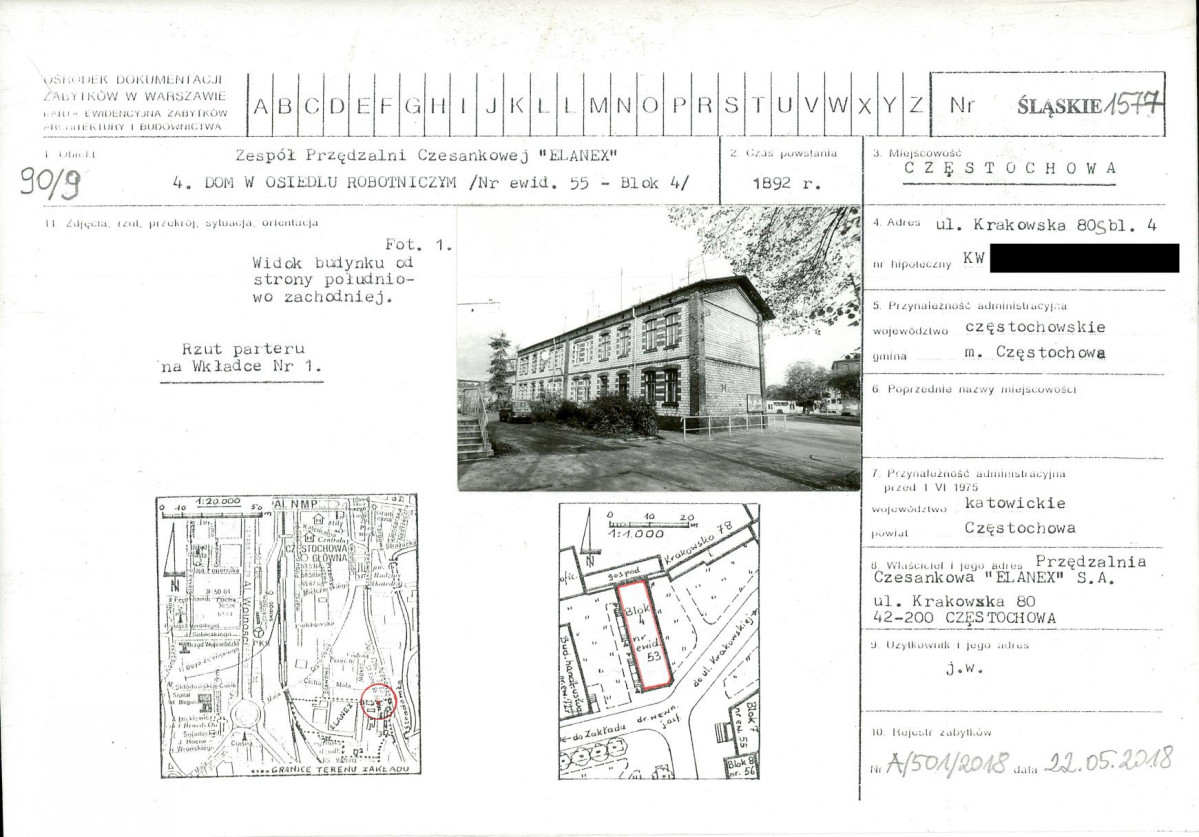 OŚRODEK DOKUMENTACJI
ZABYTKÓW W WARSZAWIE
KARTA EWIDENCYJNA ZABYTKÓW
ARCHITEKTURY I BUDOWNICTWA
A B C D E F G H I J K L Ł M N O P R S T U V W X Y Z
Nr ŚLĄSKIE 1577
1. Obiekt
Zespół Przędzalni Czesankowej "ELANEX"
90/9
4. DOM W OSIEDLU ROBOTNICZYM /Nr ewid. 55 - Blok 4/
2. Czas powstania
1892 r.
3. Miejscowość
CZĘSTOCHOWA
11. Zdjęcia, rzut, przekrój, sytuacja, orientacja
Fot. 1.
Widok budynku od
strony południo-
wo zachodniej.
Rzut parteru
na Wkładce Nr 1.
4. Adres ul. Krakowska 80 bl. 4
nr hipoteczny KW
5. Przynależność administracyjna
województwo częstochowskie
gmina m. Częstochowa
6. Poprzednie nazwy miejscowości
7. Przynależność administracyjna
przed 1 VI 1975
województwo katowickie
powiat Częstochowa
8. Właściciel i jego adres Przędzalnia
Czesankowa "ELANEX" S.A.
ul. Krakowska 80
42-200 CZĘSTOCHOWA
9. Użytkownik i jego adres
j.w.
10. Rejestr zabytków
Nr A/501/2018 data 22.05.2018
1:20.000
0 10 50 m
Al. NMP
N
CZĘSTOCHOWA
GŁÓWNA
Al. Wolności
PKS
Urząd Wojewódzki
Sobieskiego
Cicha
Mała
ELANEX
GRANICE TERENU ZAKŁADU
0 10 20 m
1:1.000
N
Krakowska 78
ofic.
gospod
Blok
4
nr
ewid.
53
do ul. Krakowskiej
do Zakładu
dr. wewn.
Blok 7
nr ew
55
Blok 8
nr. 56